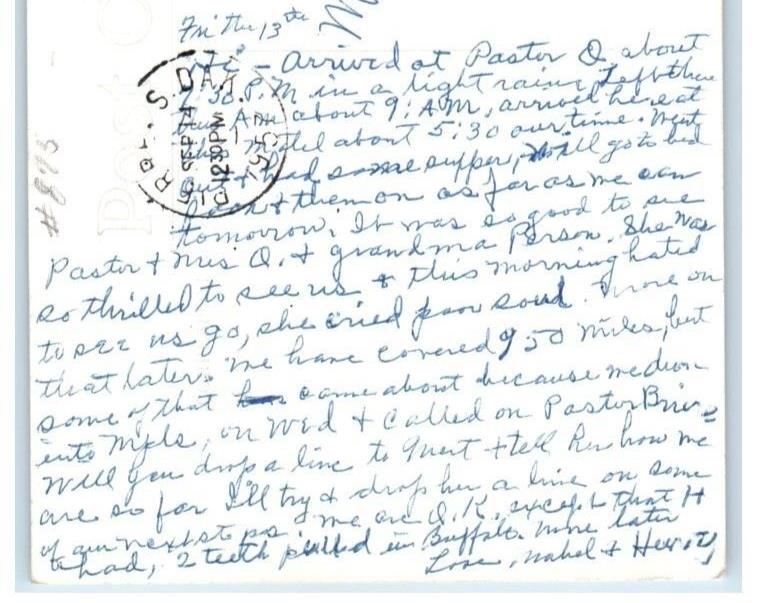 Fri the 13th
Hi - Arrived at Pastor Q. about
7:30 P.M in a light rain. Left there
this A.M about 9: A.M, arrived here at
the Motel about 5:30 our time. Went
out & had some supper, Will go to bed
soon & then on as far as we can
tomorrow. It was so good to see
Pastor & Mrs Q. & grandma Person. She was
so thrilled to see us & this morning hated
to see us go, she cried poor soul. More on
that later. We have covered 950 miles, but
some of that came about because we drove
into Mpls, on Wed & called on Pastor
Will you drop a line to & tell her how we
are so far I'll try & drop her a line on some
of our next stops. We are O.K. except that H
had, 2 teeth pulled in Buffalo. More later
Love, Mabel &
RAP S. DAK.
SEP 14
12 30 PM
#893
Post C
M